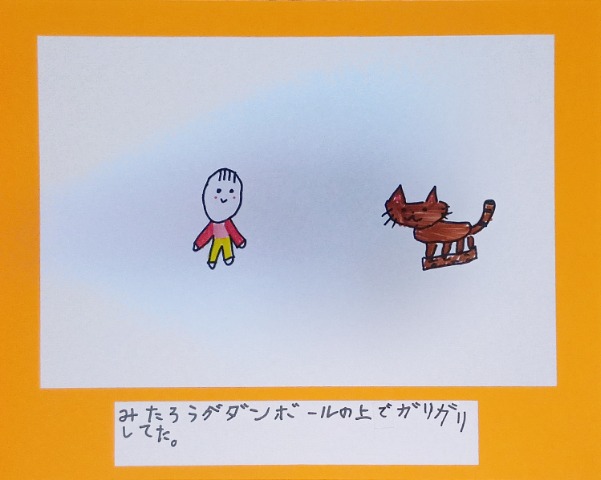 みたろうがダンボールの上でガリガリ
してた。